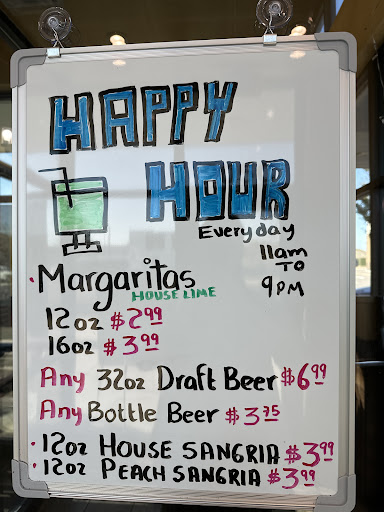 HAPPY
HOUR
Everyday
11am
TO
9PM
· Margaritas
HOUSE LIME
12oz $2.99
16oz $3.99
Any 32oz Draft Beer $6.99
Any Bottle Beer $3.75
· 12oz HOUSE SANGRIA $3.99
· 12oz PEACH SANGRIA $3.99